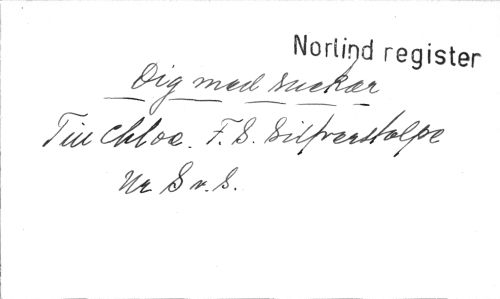 Norlind register
Dig med suckar
Till Chloe. F. S. Silfverstolpe
Ur S v. S.